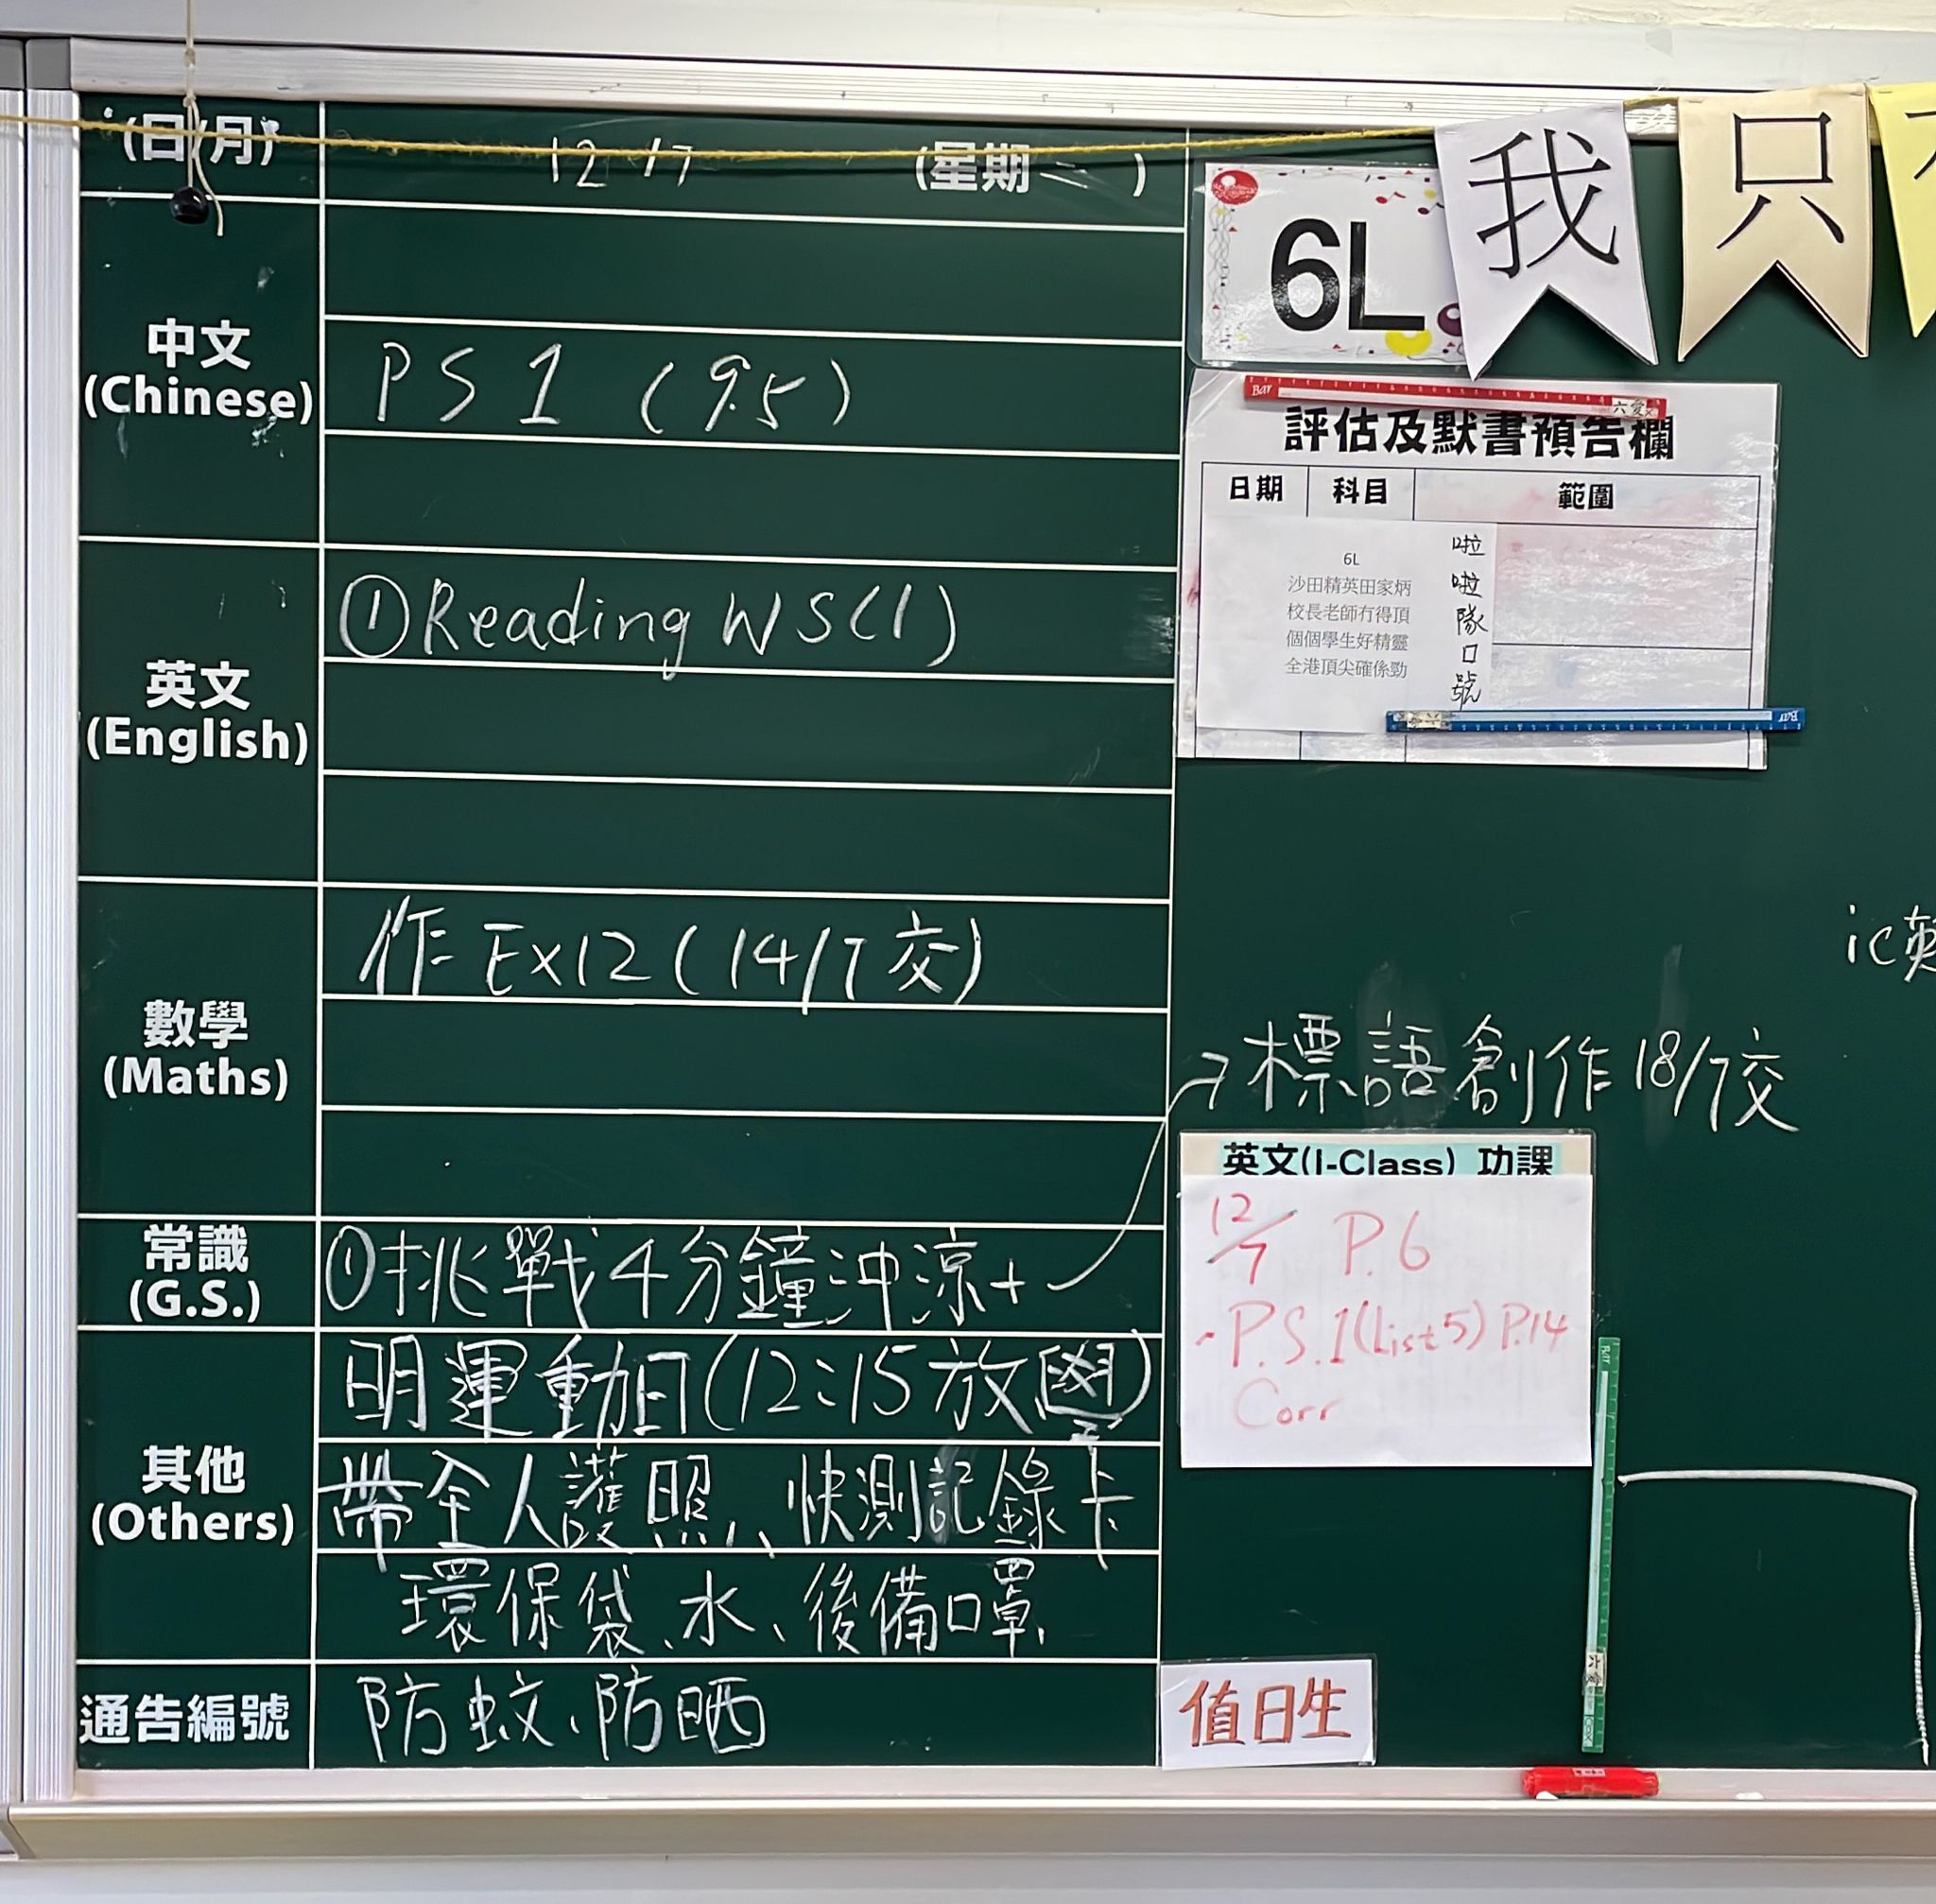 (日/月) 12/7 (星期二)
中文
(Chinese)
PS 1 (9.5)
英文
(English)
①Reading WS(1)
數學
(Maths)
作 Ex12 (14/7 交)
常識
(G.S.)
①挑戰4分鐘沖涼+
→標語創作 18/7交
其他
(Others)
明運動日(12:15放學)
帶全人護照、快測記錄卡
環保袋、水、後備口罩、
通告編號
防蚊、防晒
6L
我
只
Bar
六愛
評估及默書預告欄
日期 科目 範圍
6L
沙田精英田家炳
校長老師冇得頂
個個學生好精靈
全港頂尖確係勁
啦啦隊口號
Bar
ic英
英文(I-Class) 功課
12/7 P.6
-P.S.1(List5) P.14
Corr
Bar
值日生